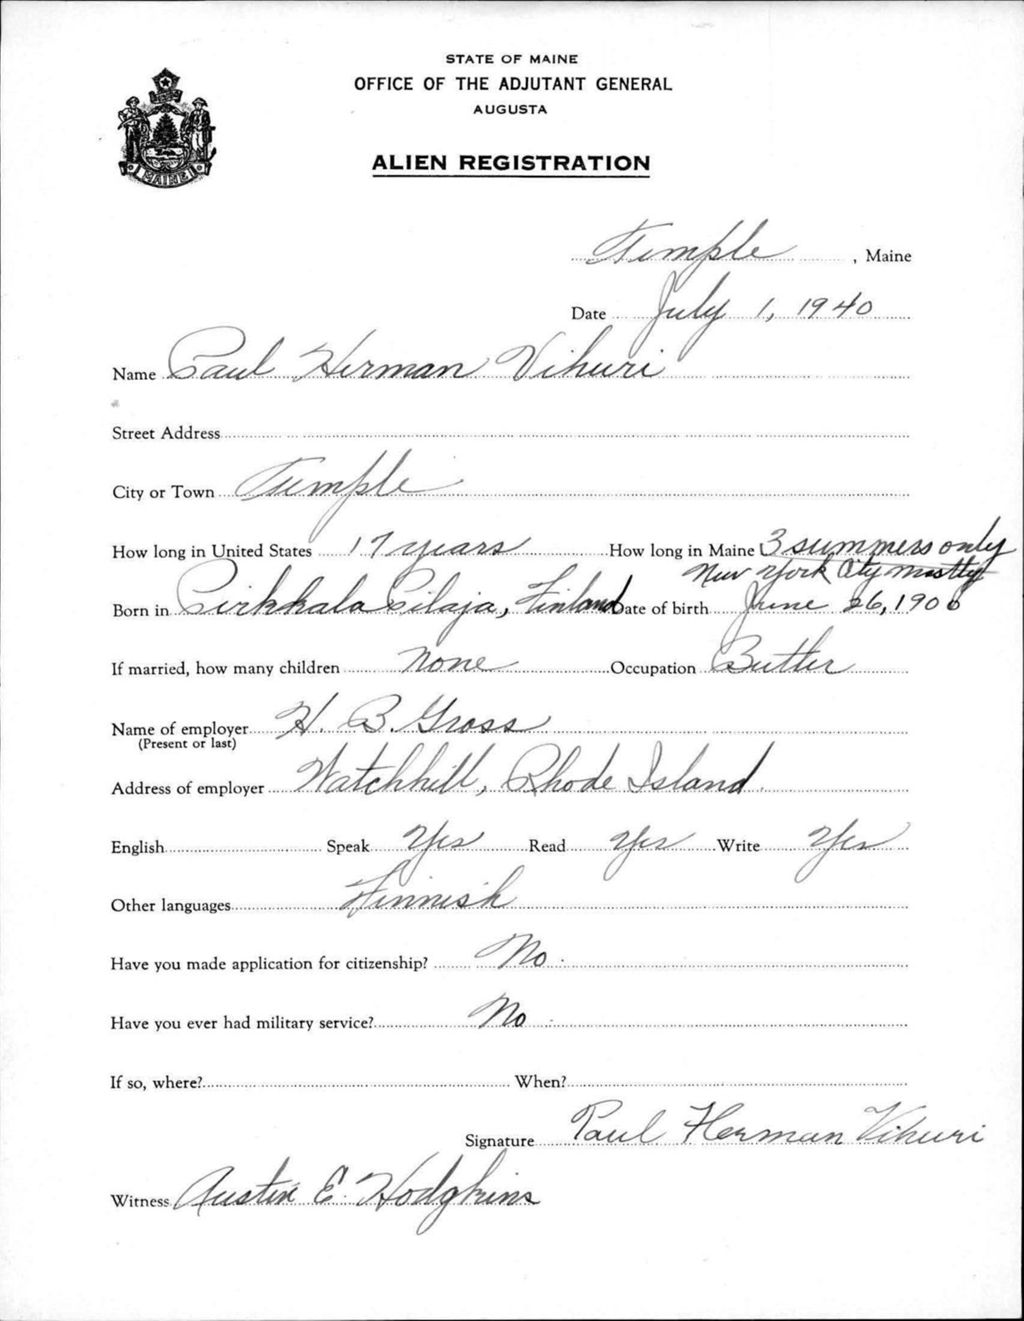 STATE OF MAINE
OFFICE OF THE ADJUTANT GENERAL
AUGUSTA
ALIEN REGISTRATION
MAINE
Temple, Maine
Date July 1, 1940
Name Paul Herman Vihuri
Street Address
City or Town Temple
How long in United States 17 years How long in Maine 3 summers only
New York City mostly
Born in Pirkkala Pilaja, Finland Date of birth June 26, 1906
If married, how many children None Occupation Butler
Name of employer H. B. Gross
(Present or last)
Address of employer Watchhill, Rhode Island
English Speak Yes Read Yes Write Yes
Other languages Finnish
Have you made application for citizenship? No
Have you ever had military service? No
If so, where? When?
Signature Paul Herman Vihuri
Witness Austin E. Hodgkins